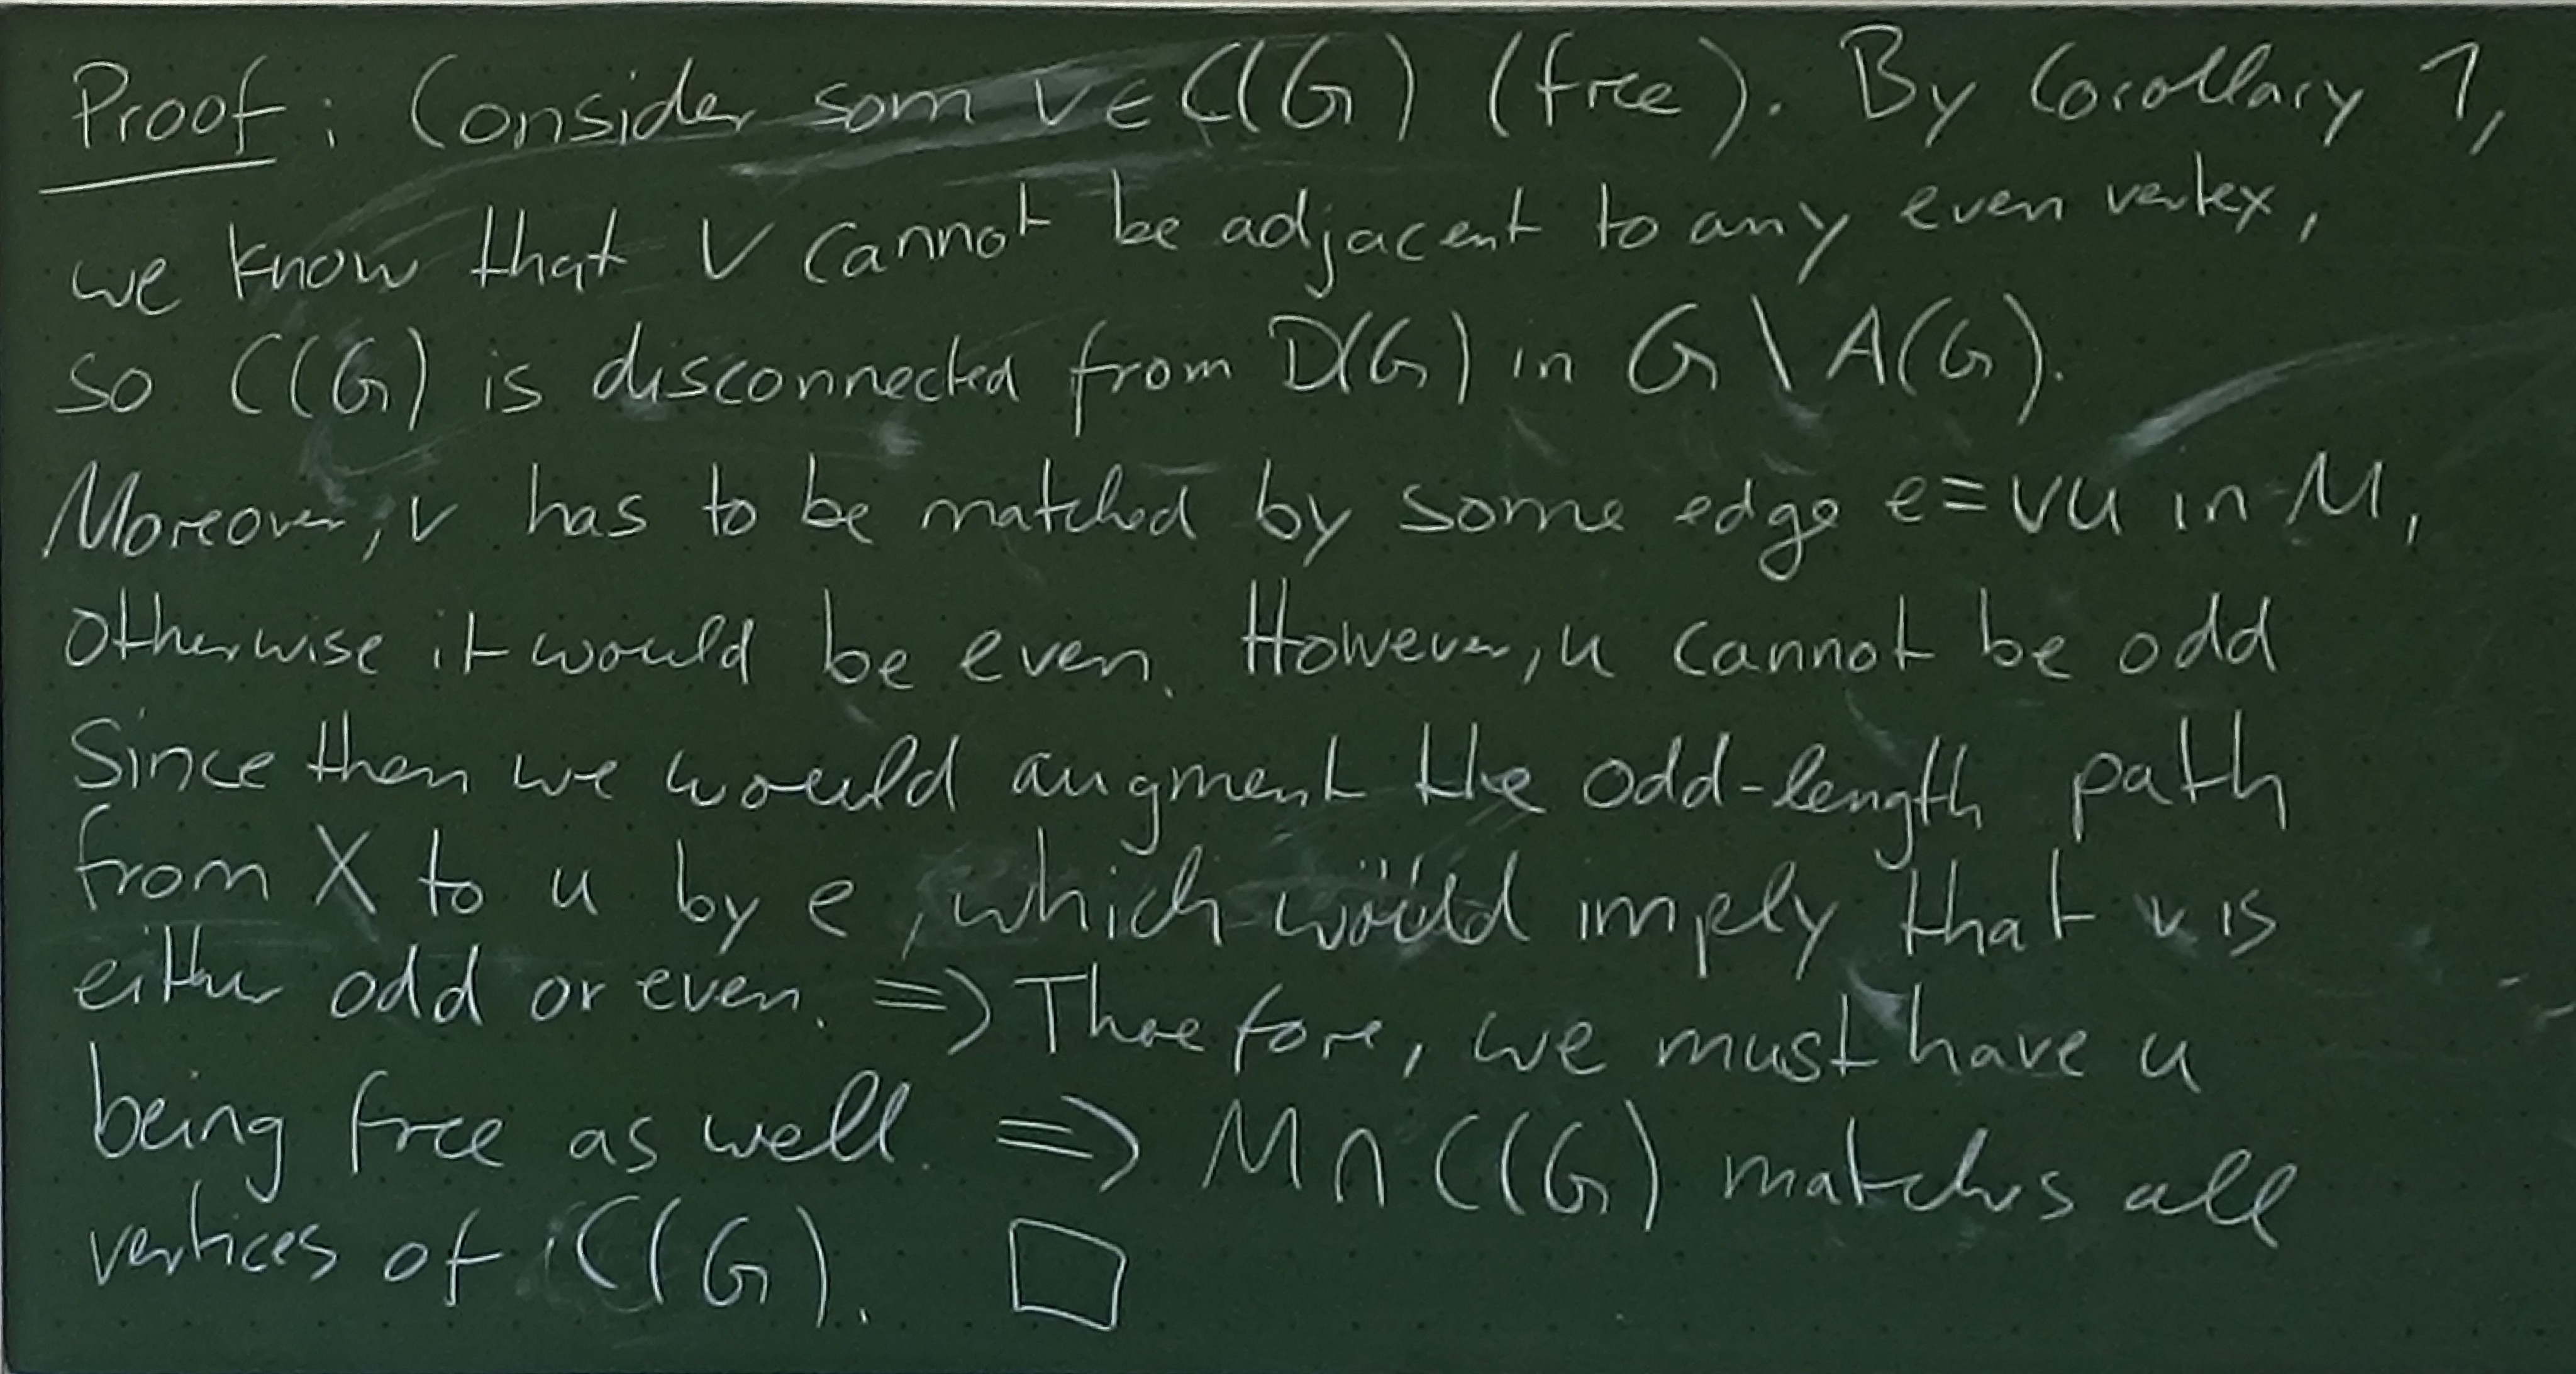 Proof: Consider som v ∈ C(G) (free). By Corollary 1,
we know that v cannot be adjacent to any even vertex,
so C(G) is disconnected from D(G) in G \ A(G).
Moreover, v has to be matched by some edge e=vu in M,
otherwise it would be even. However, u cannot be odd
Since then we would augment the odd-length path
from X to u by e, which would imply that v is
either odd or even. => Therefore, we must have u
being free as well. => M ∩ C(G) matches all
vertices of C(G). □